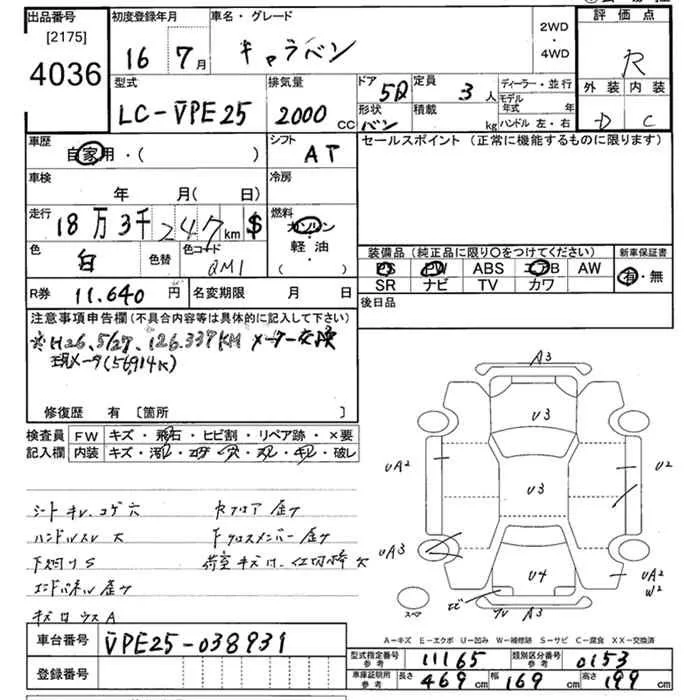 出品番号 初度登録年月 車名・グレード 2WD・4WD 評価点
[2175]
4036 16 7月 キャラバン R
型式 排気量 ドア 5D 定員 3人 ディーラー・並行 外装 内装
LC-VPE25 2000 CC 形状 バン 積載 kg モデル年式 年 D C
ハンドル 左・右
車歴 自家用・( ) シフト AT セールスポイント (正常に機能するものに限ります)
車検 年 月(日) 冷房
走行 18万3千247km $ 燃料 ガソリン・軽油・( )
色 白 色替 色コード QM1
装備品 (純正品に限り○をつけてください) 新車保証書
PS PW ABS エアB AW 有・無
SR ナビ TV カワ
R券 11.640円 名変期限 月 日 後日品
注意事項申告欄 (不具合内容等は具体的に記入して下さい)
※H26.5/27. 126.337KM メーター交換
現メータ(56,914K)
修復歴 有 [箇所 ]
検査員 FW キズ・飛石・ヒビ割・リペア跡・×要
記入欄 内装 キズ・汚レ・コゲ・穴・スレ・キレ・破レ
A3
U3
UA2 U3 U2
シートキレ、コゲ穴
ハンドルスレ 大
UA3
下廻りS
U4 UA2
W2
エンドパネル歪ナ
スペア A3
A-キズ E-エクボ U-凹み W-補修跡 S-サビ C-腐食 XX-交換済
車台番号 VPE25-038931
型式指定番号 参考 11165 類別区分番号 参考 0153
登録番号 車庫証明用 参考 長さ 469cm 幅 169cm 高さ 199cm